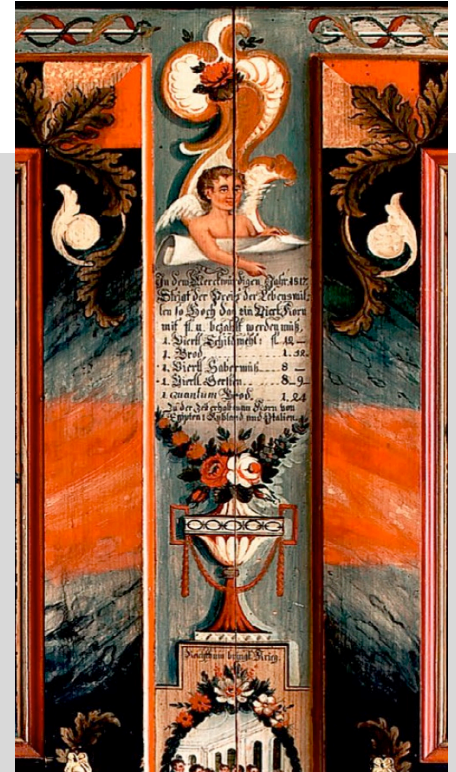 In dem Merckwürdigen Jahr 1817
Steigt der Preis der Lebensmit-
len so Hoch das ein Viert Korn
mit fl. 11. bezahlt werden muß.
1. Viertl Schildmehl: fl. 12 —
1. Brod 1. 32.
1. Viertl Habermuß 8 —
1. Viertl. Gersten 8. 9—
1 quantum Brod. 1. 24
In der Zeit erhalt man Korn von
Egypten: Rußland und Ytalien.
Reichthum bringt Krieg.